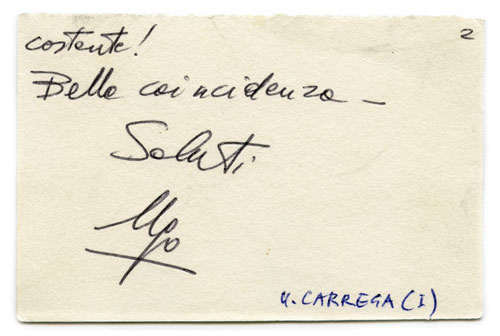 2
costante!
Bella coincidenza —
Saluti
Ugo
U. CARREGA (I)